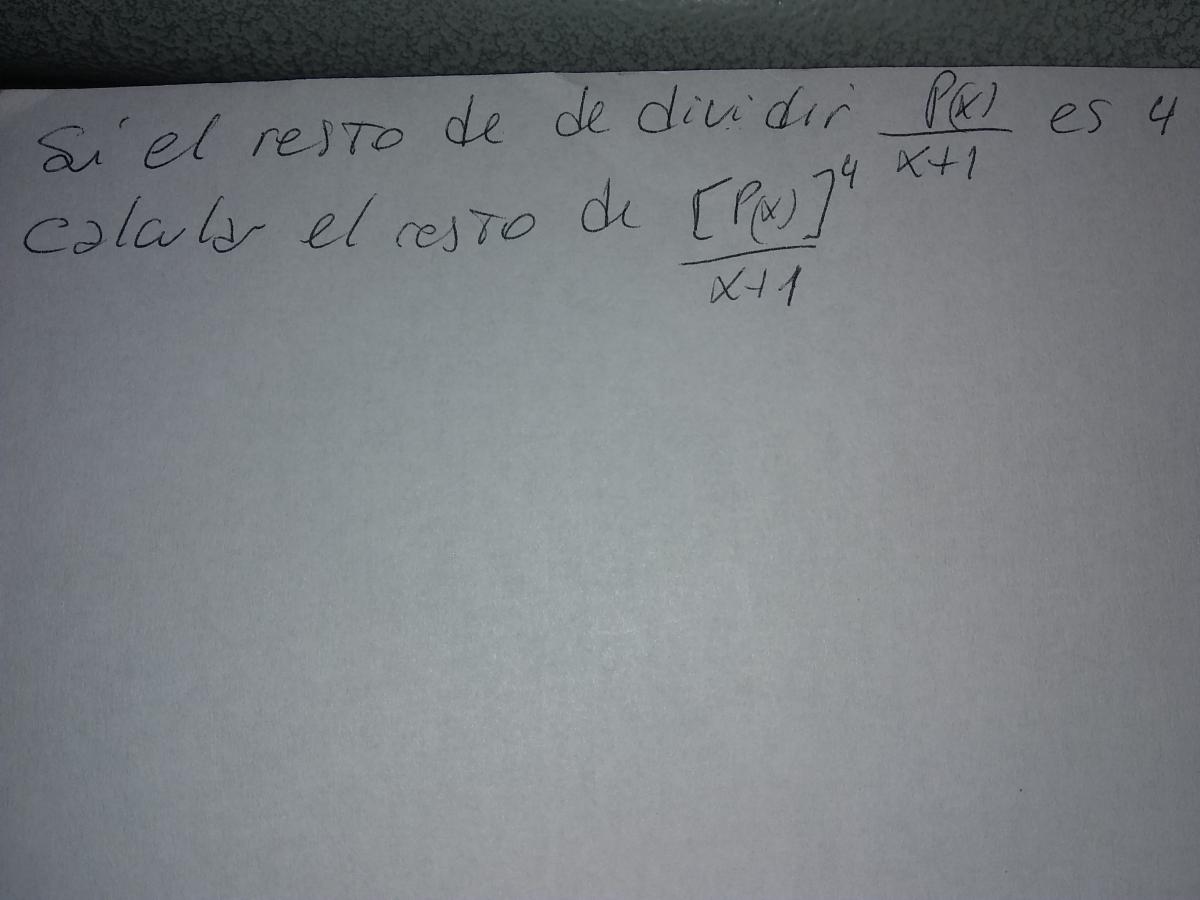 Si el resto de de dividir P(x)/x+1 es 4
calcular el resto de [P(x)]^4/x+1